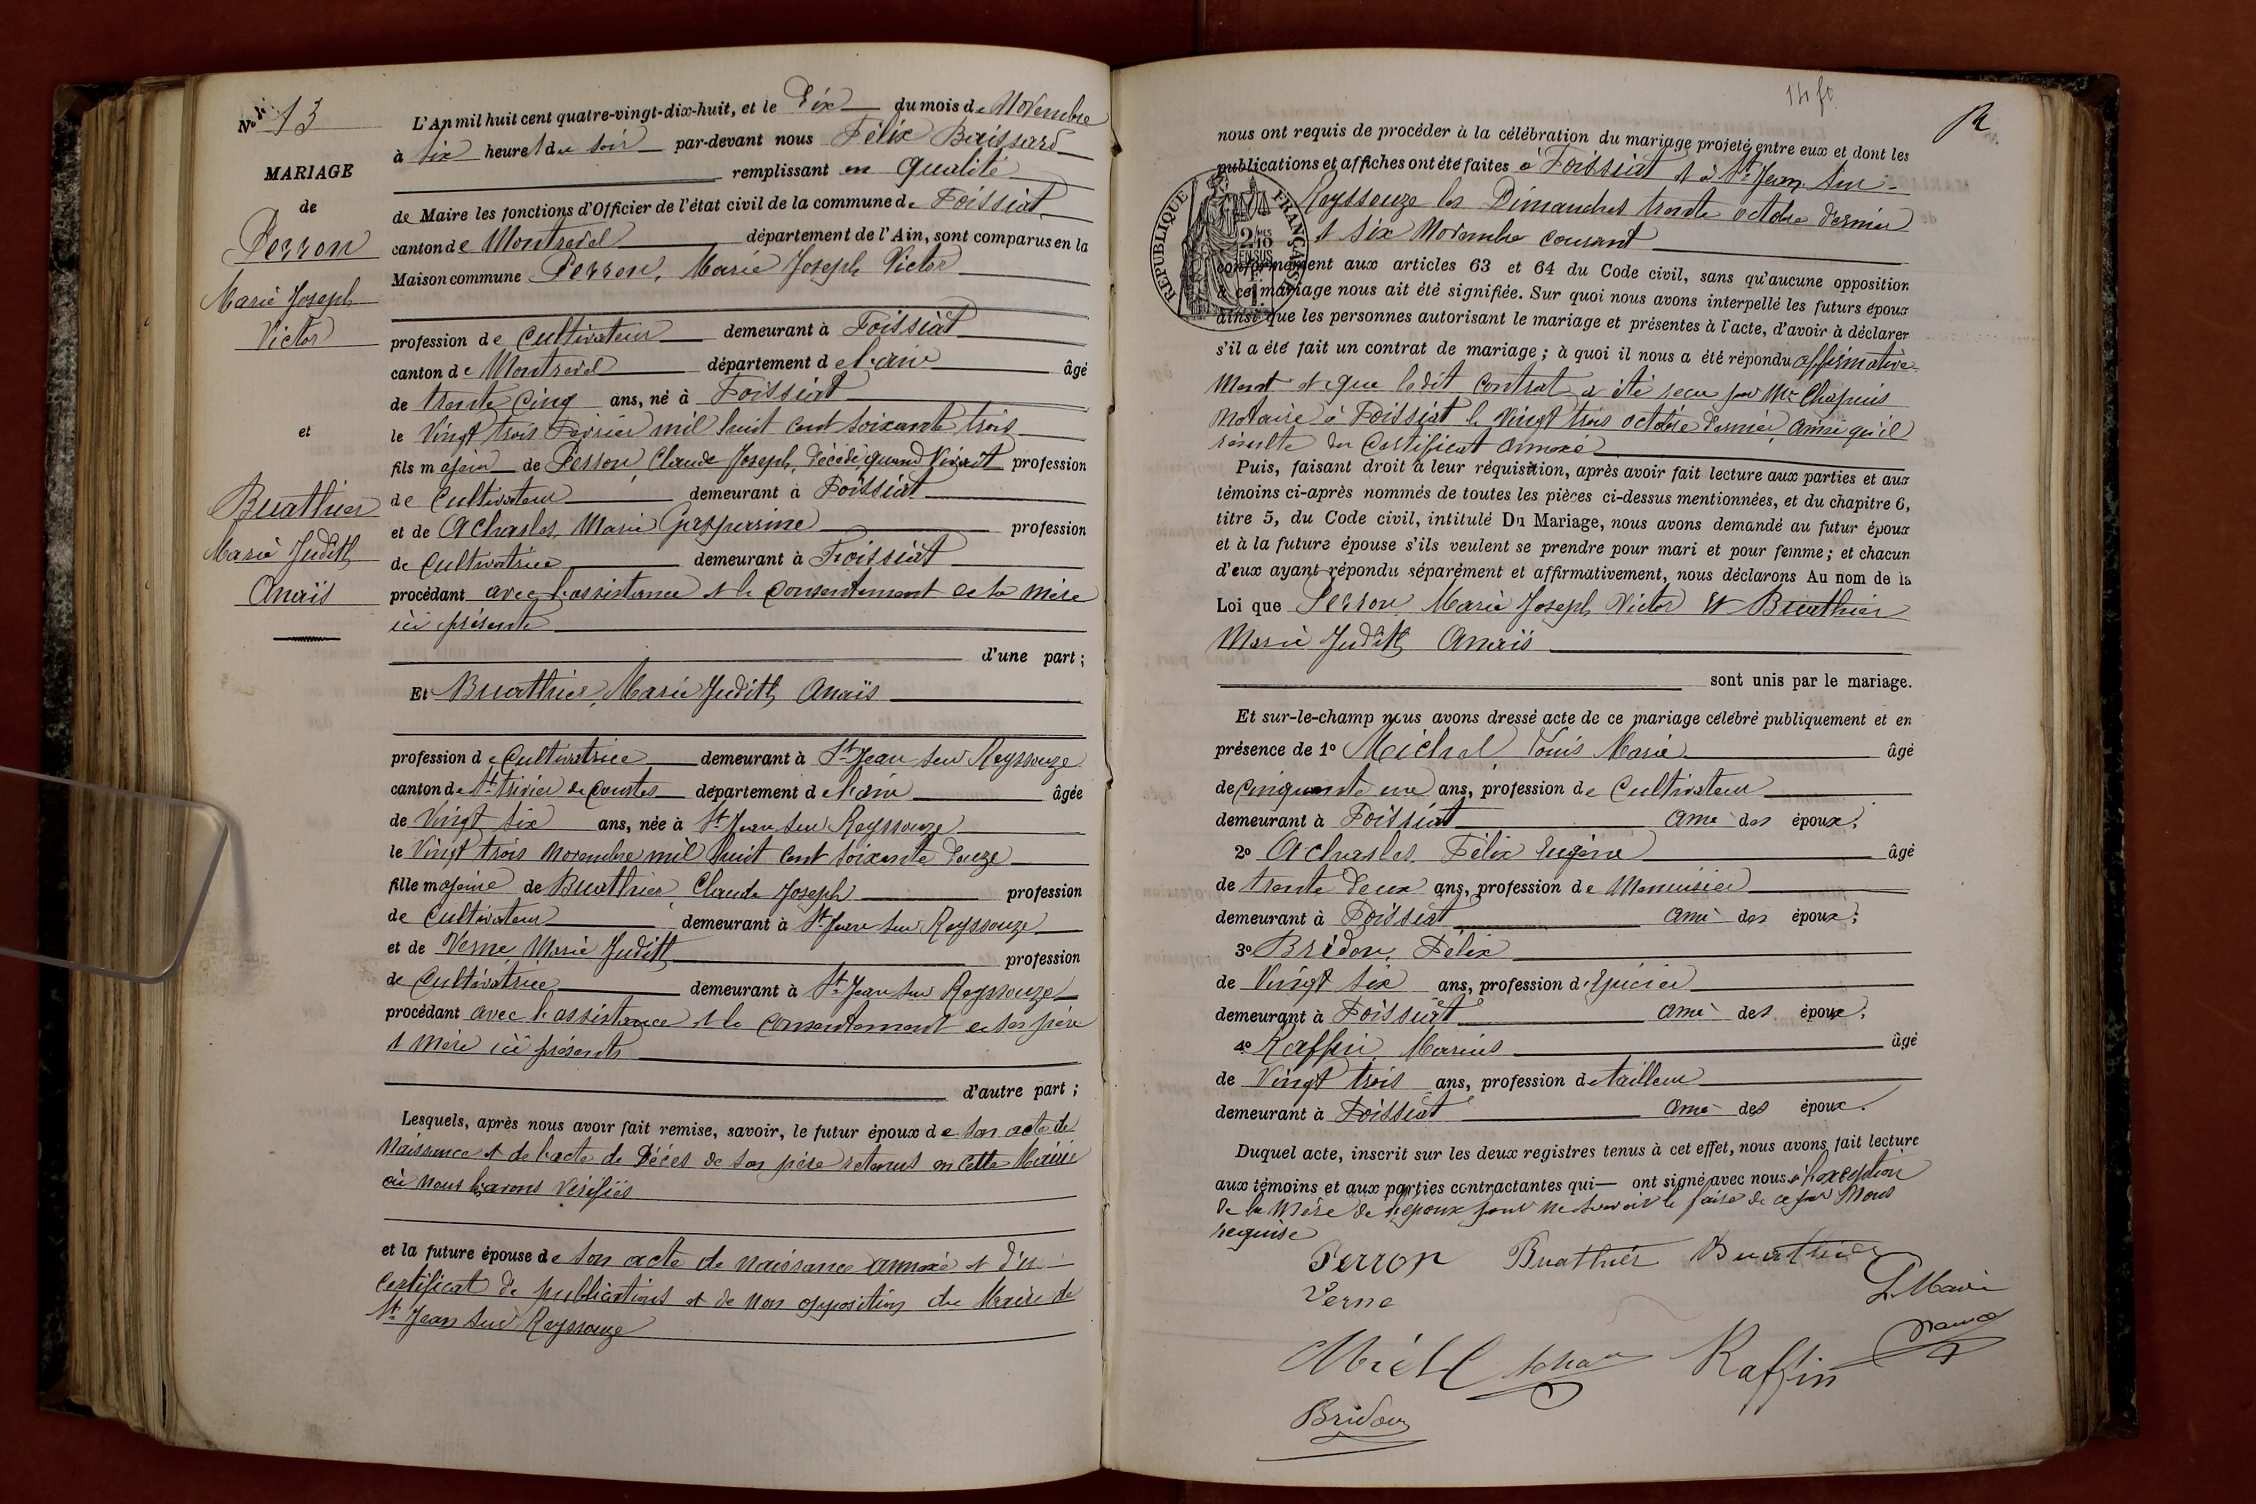 N° 13
MARIAGE
de
Perron
Marie Joseph
Victor
et
Buathier
Marie Judith
Anaïs
L'An mil huit cent quatre-vingt-dix-huit, et le Dix du mois de Novembre
à six heures du soir par-devant nous Félix Buissard
remplissant en qualité
de Maire les fonctions d'Officier de l'état civil de la commune de Foissiat
canton de Montrevel département de l'Ain, sont comparus en la
Maison commune Perron, Marie Joseph Victor
profession de Cultivateur demeurant à Foissiat
canton de Montrevel département de l'ain âgé
de trente cinq ans, né à Foissiat
le Vingt trois Février mil huit cent soixante trois
fils majeur de Perron, Claude Joseph, décédé, quand Vivait profession
de Cultivateur demeurant à Foissiat
et de Acharles, Marie profession
de Cultivatrice demeurant à Foissiat
procédant avec l'assistance et le consentement de sa mère
ici présente
d'une part;
Et Buathier, Marie Judith Anaïs
profession de Cultivatrice demeurant à St Jean sur Reyssouze
canton de St trivier de Courtes département de l'ain âgée
de Vingt six ans, née à St Jean sur Reyssouze
le Vingt trois Novembre mil huit cent soixante douze
fille majeure de Buathier, Claude Joseph profession
de Cultivateur demeurant à St Jean sur Reyssouze
et de Verne, Marie Judith profession
de Cultivatrice demeurant à St Jean sur Reyssouze
procédant avec l'assistance et le consentement de ses père
et mère ici présents
d'autre part;
Lesquels, après nous avoir fait remise, savoir, le futur époux de son acte de
Naissance et de l'acte de Décès de son père retenus en cette Mairie
où nous l'avons Vérifiés
et la future épouse de son acte de naissance annexé et d'un
certificat de publications et de non opposition du Maire de
St Jean sur Reyssouze
nous ont requis de procéder à la célébration du mariage projeté entre eux et dont les
publications et affiches ont été faites à Foissiat et à St Jean sur
Reyssouze les Dimanches trente octobre dernier
et six Novembre courant
RÉPUBLIQUE FRANÇAISE
conformément aux articles 63 et 64 du Code civil, sans qu'aucune opposition
à ce mariage nous ait été signifiée. Sur quoi nous avons interpellé les futurs époux
ainsi que les personnes autorisant le mariage et présentes à l'acte, d'avoir à déclarer
s'il a été fait un contrat de mariage; à quoi il nous a été répondu affirmative
ment et que ledit contrat a été reçu par Me Chapuis
Notaire à Foissiat le vingt trois octobre dernier, ainsi qu'il
résulte du Certificat annexé
Puis, faisant droit à leur réquisition, après avoir fait lecture aux parties et aux
témoins ci-après nommés de toutes les pièces ci-dessus mentionnées, et du chapitre 6,
titre 5, du Code civil, intitulé Du Mariage, nous avons demandé au futur époux
et à la future épouse s'ils veulent se prendre pour mari et pour femme; et chacun
d'eux ayant répondu séparément et affirmativement, nous déclarons Au nom de la
Loi que Perron Marie Joseph Victor Et Buathier
Marie Judith Anaïs
sont unis par le mariage.
Et sur-le-champ nous avons dressé acte de ce mariage célébré publiquement et en
présence de 1° Michel, Louis Marie âgé
de cinquante un ans, profession de Cultivateur
demeurant à Foissiat ami des époux;
2° Acharles Félix Eugène âgé
de trente deux ans, profession de Menuisier
demeurant à Foissiat ami des époux;
3° Bridon, Félix
de Vingt six ans, profession d'Epicier
demeurant à Foissiat ami des époux;
4° Raffin, Marius âgé
de Vingt trois ans, profession de tailleur
demeurant à Foissiat ami des époux.
Duquel acte, inscrit sur les deux registres tenus à cet effet, nous avons fait lecture
aux témoins et aux parties contractantes qui ont signé avec nous à l'exception
de la Mère de l'époux pour ne savoir le faire de ce par Nous
requise
Perron Buathier Buathier
Verne
Raffin
Bridon